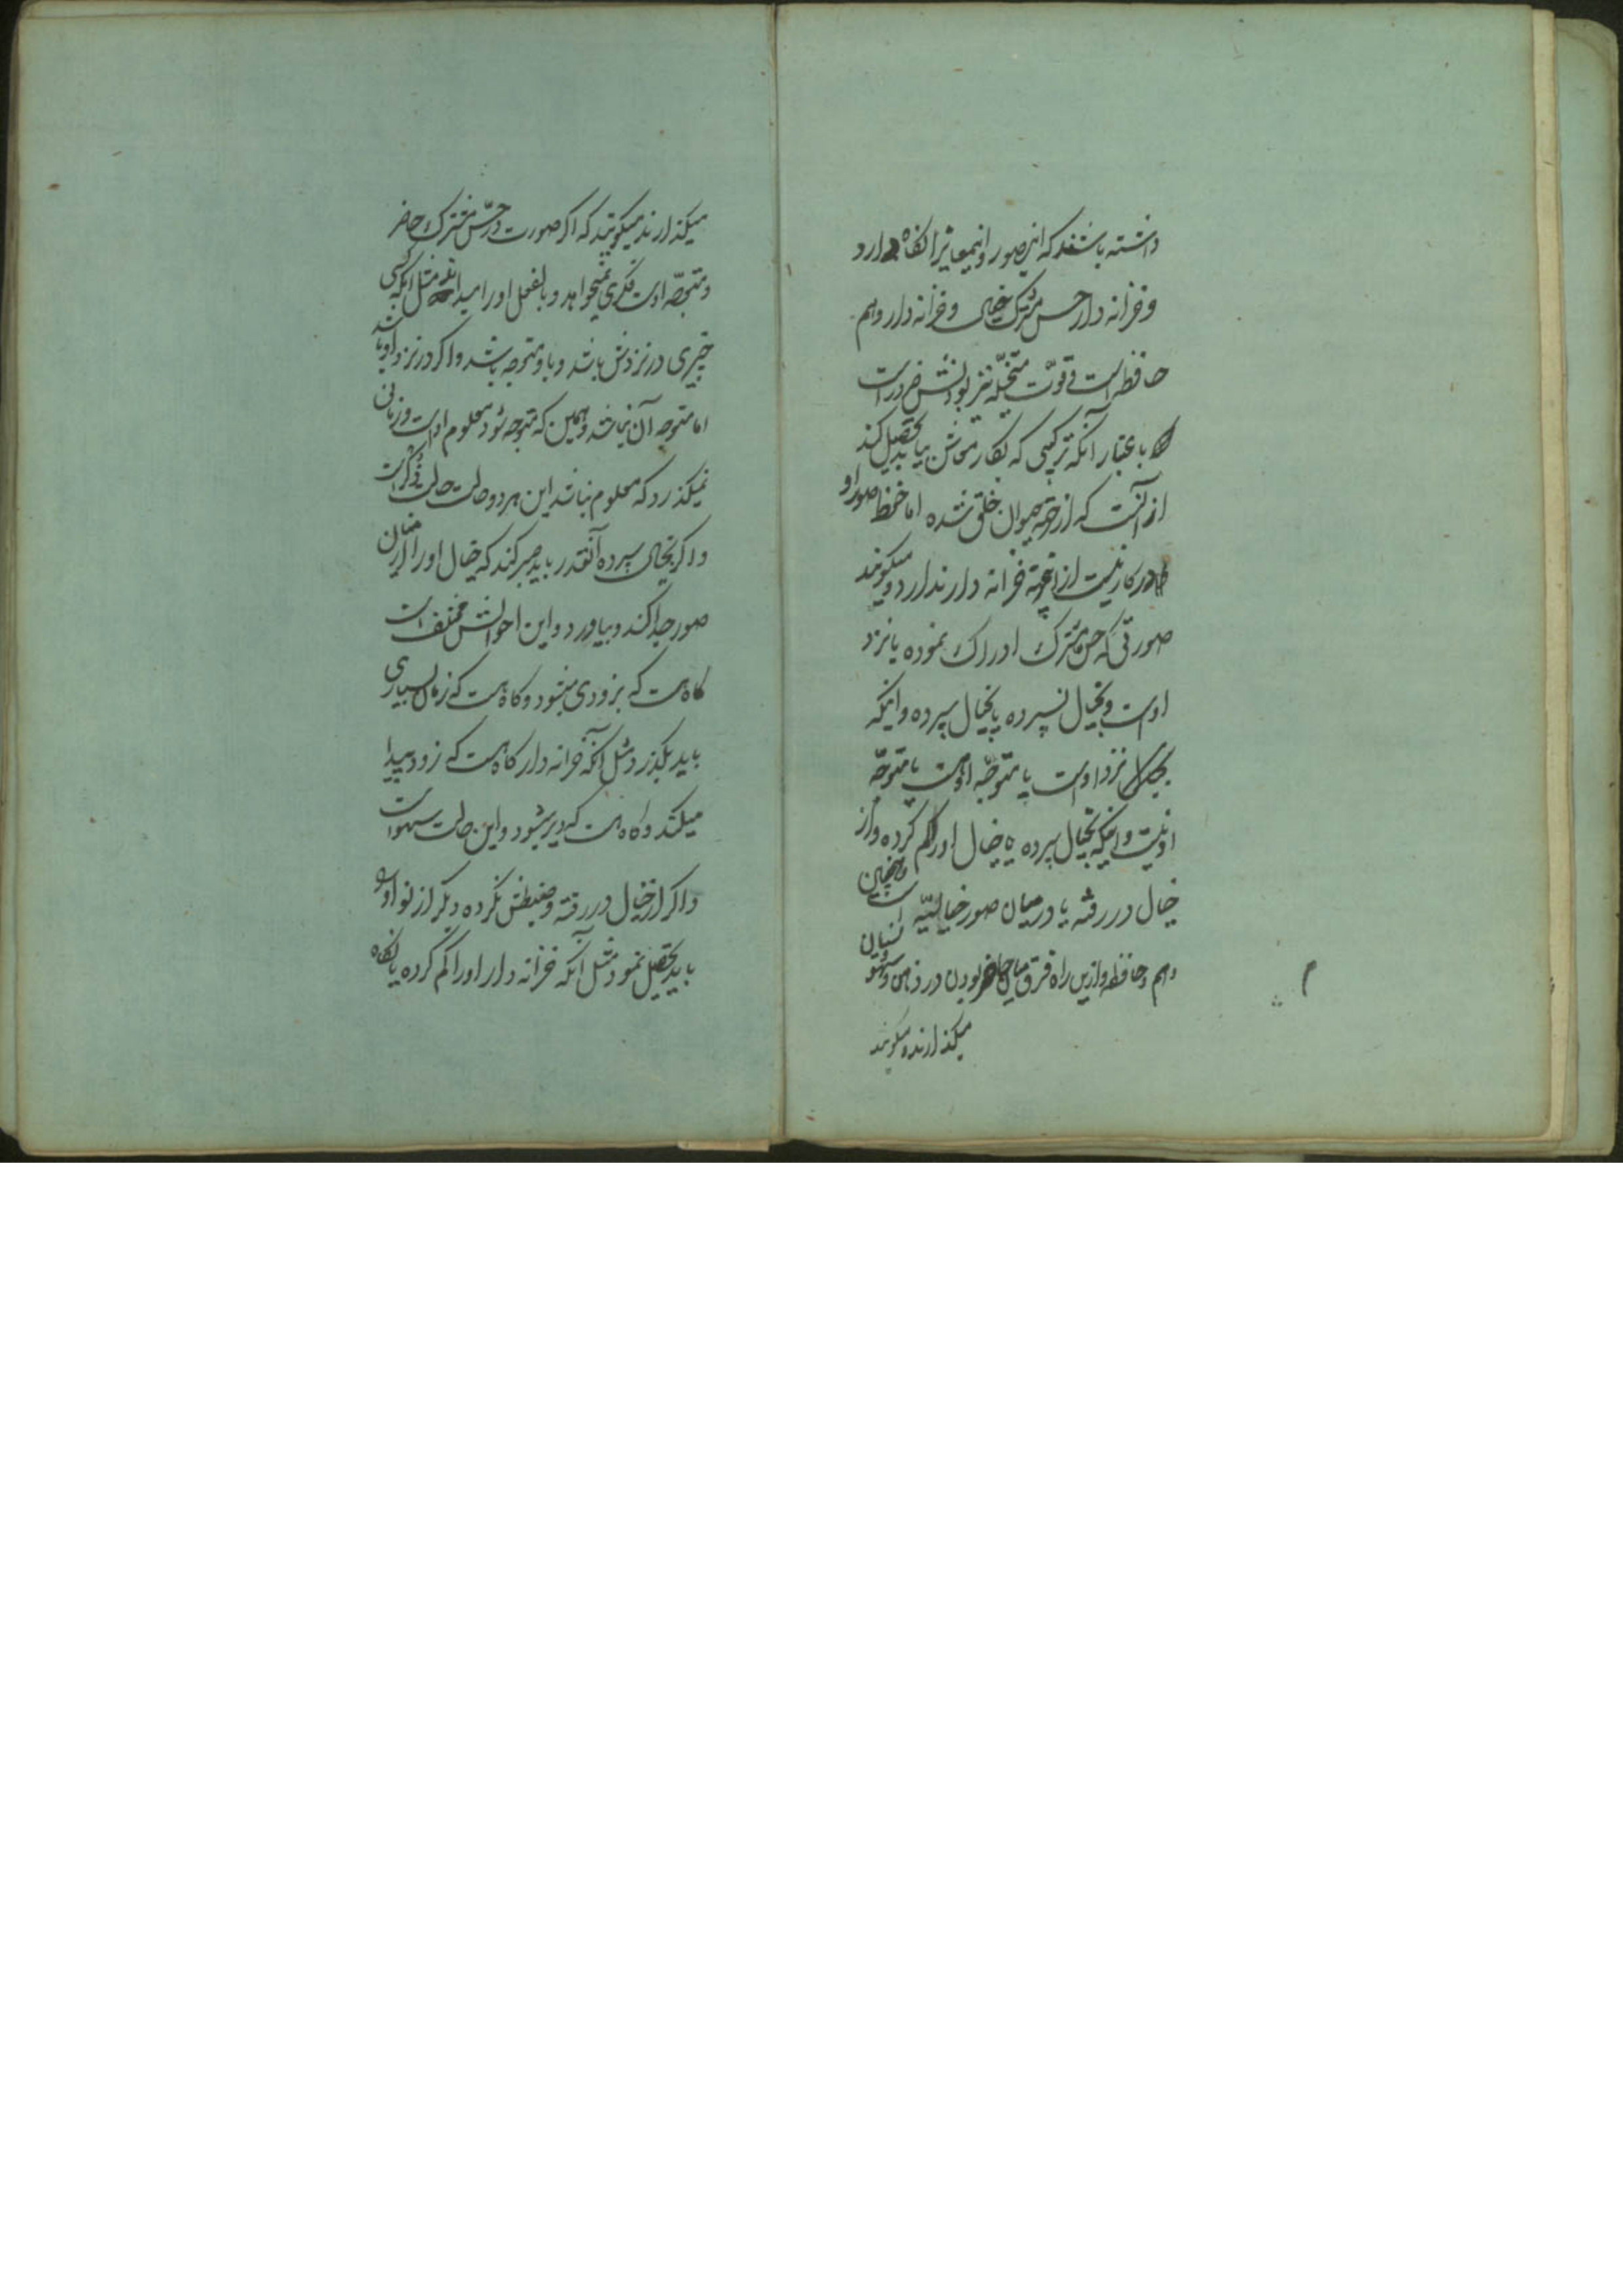 داشته باشند که این صور و این معانی را نگاه دارد
و خزانه دار حس مشترک خیال و خزانه دار وهم
حافظه است و قوّت متخیّله نیز بودنش ضرور است
باعتبار آنکه ترکیبی که بکار معاش بیاید تحصیل کند
از آنست که از جهة حیوان خلق شده اما حفظ صور او
در کار نیست از این جهة خزانه دار ندارد و میگویند
صورتی که حس مشترک ادراک نموده یا نزد
اوست و بخیال نسپرده یا بخیال سپرده و اینکه
نزد اوست یا متوجّه اوست یا متوجّه
او نیست و اینکه بخیال سپرده یا خیال او را گم کرده و از
خیال در رفته یا در میان صور خیالیّه است و همچنین
وهم و حافظه و ازین راه فرق میان حاضر بودن در ذهن و سهو و نسیان
میگذارند و میگویند
میگذارند میگویند که اگر صورت در حسّ مشترک حاضر
و متوجّه اوست فکری نمیخواهد و بالفعل او را میداند مثل آنکه کسی
چیزی در نزدش باشد و باو متوجه باشد و اگر در نزد او باشد
اما متوجه آن نباشد و همین که متوجه شود معلوم اوست و زمانی
نمیگذرد که معلوم نباشد این هر دو حالت حالت ذکر است
و اگر بخیال سپرده آنقدر باید صبر کند که خیال او را از میان
صور جدا کند و بیاورد و این احوالش مختلف است
گاه هست که بزودی میشود و گاه هست که زمان بسیاری
باید بگذرد مثل آنکه خزانه دار گاه هست که زود پیدا
میکند و گاه هست که دیر میشود و این حالت سهو است
و اگر از خیال در رفته و ضبطش نکرده دیگر از نو او را
باید تحصیل نمود مثل آنکه خزانه دار او را گم کرده یا نگاه